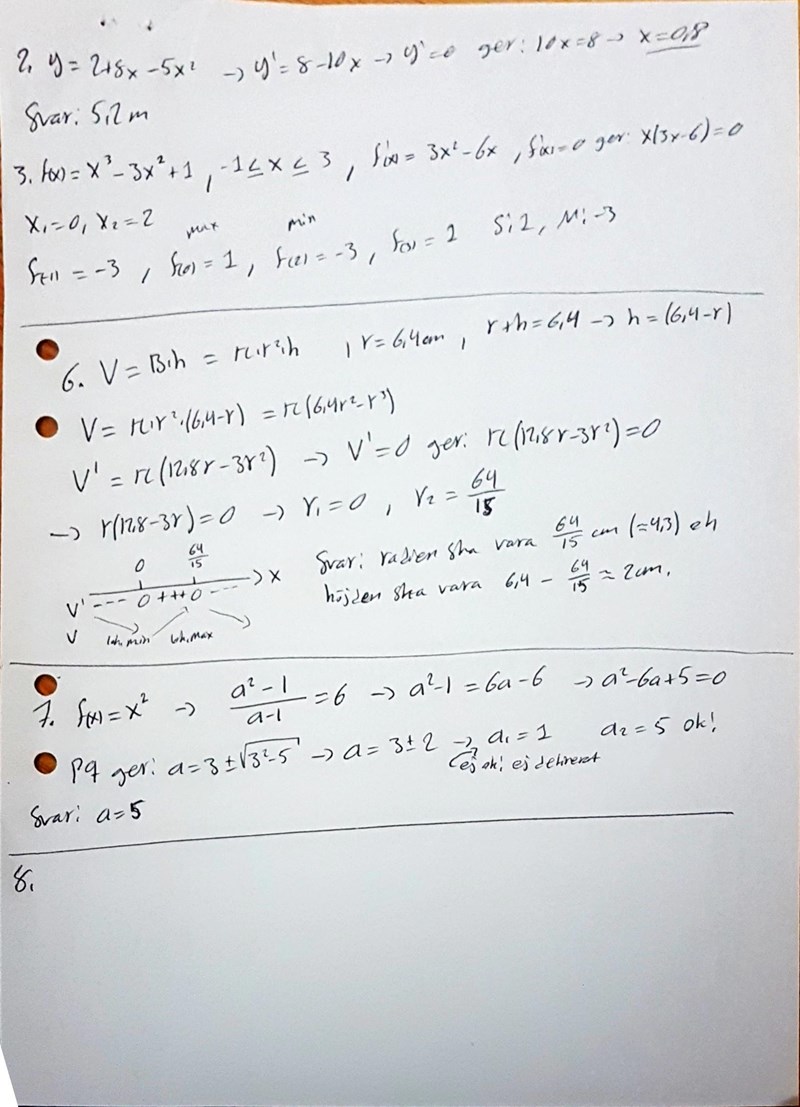 2. y = 2+8x -5x² → y' = 8-10x → y'=0 ger: 10x=8 → x=0,8
Svar: 5,2 m
3. f(x) = x³-3x²+1 , -1≤x≤3 , f'(x) = 3x²-6x , f'(x)=0 ger: x(3x-6)=0
x₁=0, x₂=2
max min
f(-1) = -3 , f(0) = 1 , f(2) = -3 , f(3) = 1 S: 1, M: -3
6. V = B·h = π·r²·h , r = 6,4 cm , r+h = 6,4 → h = (6,4-r)
V = π·r²·(6,4-r) = π(6,4r²-r³)
V' = π(12,8r-3r²) → V'=0 ger: π(12,8r-3r²)=0
→ r(12,8-3r)=0 → r₁=0 , r₂ = 64/15
0 64/15 → x
V' --- 0 +++ 0 ---
V lok.min lok.max
Svar: radien ska vara 64/15 cm (≈4,3) och
höjden ska vara 6,4 - 64/15 ≈ 2cm.
7. f(x)=x² → (a²-1)/(a-1) = 6 → a²-1 = 6a-6 → a²-6a+5=0
pq ger: a=3±√(3²-5) → a = 3±2 → a₁=1 a₂=5 ok!
ej ok! ej definerat
Svar: a=5
8.